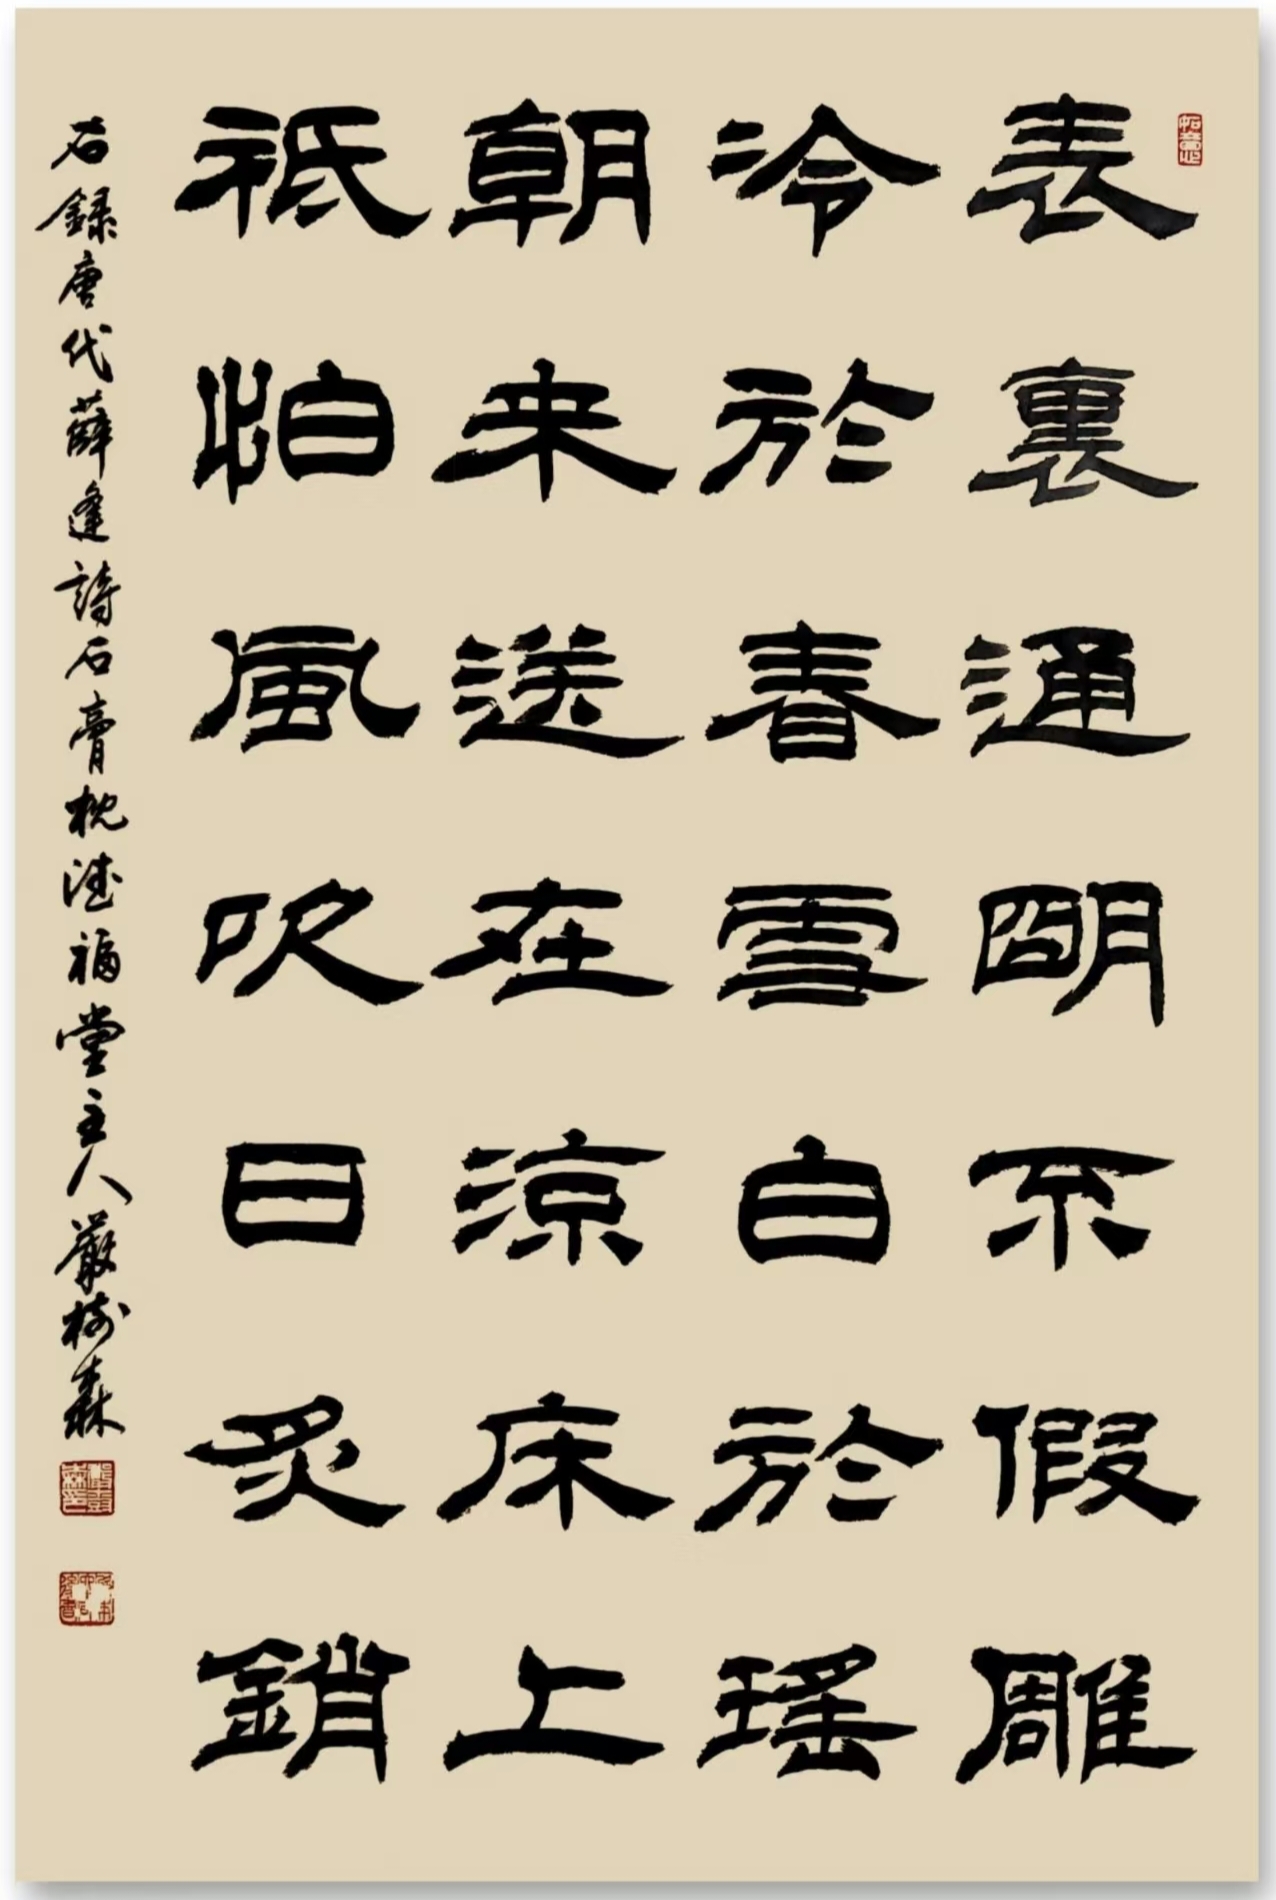 表裏通明不假雕
冷於春雪白於瑤
朝来送在涼床上
祇怕風吹日炙銷
右録唐代薛逢詩石膏枕德福堂主人嚴樹森